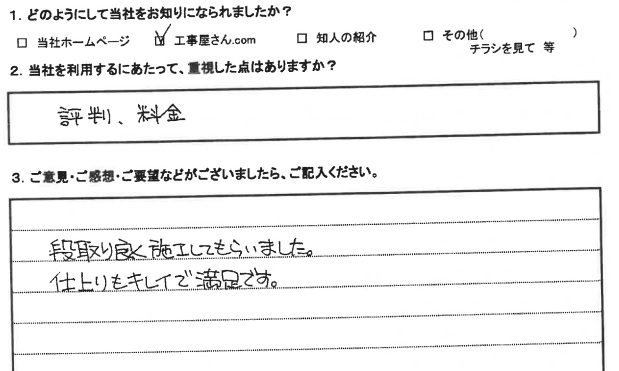 1. どのようにして当社をお知りになられましたか？
□ 当社ホームページ ☑ 工事屋さん.com □ 知人の紹介 □ その他( )
チラシを見て 等
2. 当社を利用するにあたって、重視した点はありますか？
評判、料金
3. ご意見・ご感想・ご要望などがございましたら、ご記入ください。
段取り良く施工してもらいました。
仕上りもキレイで満足です。